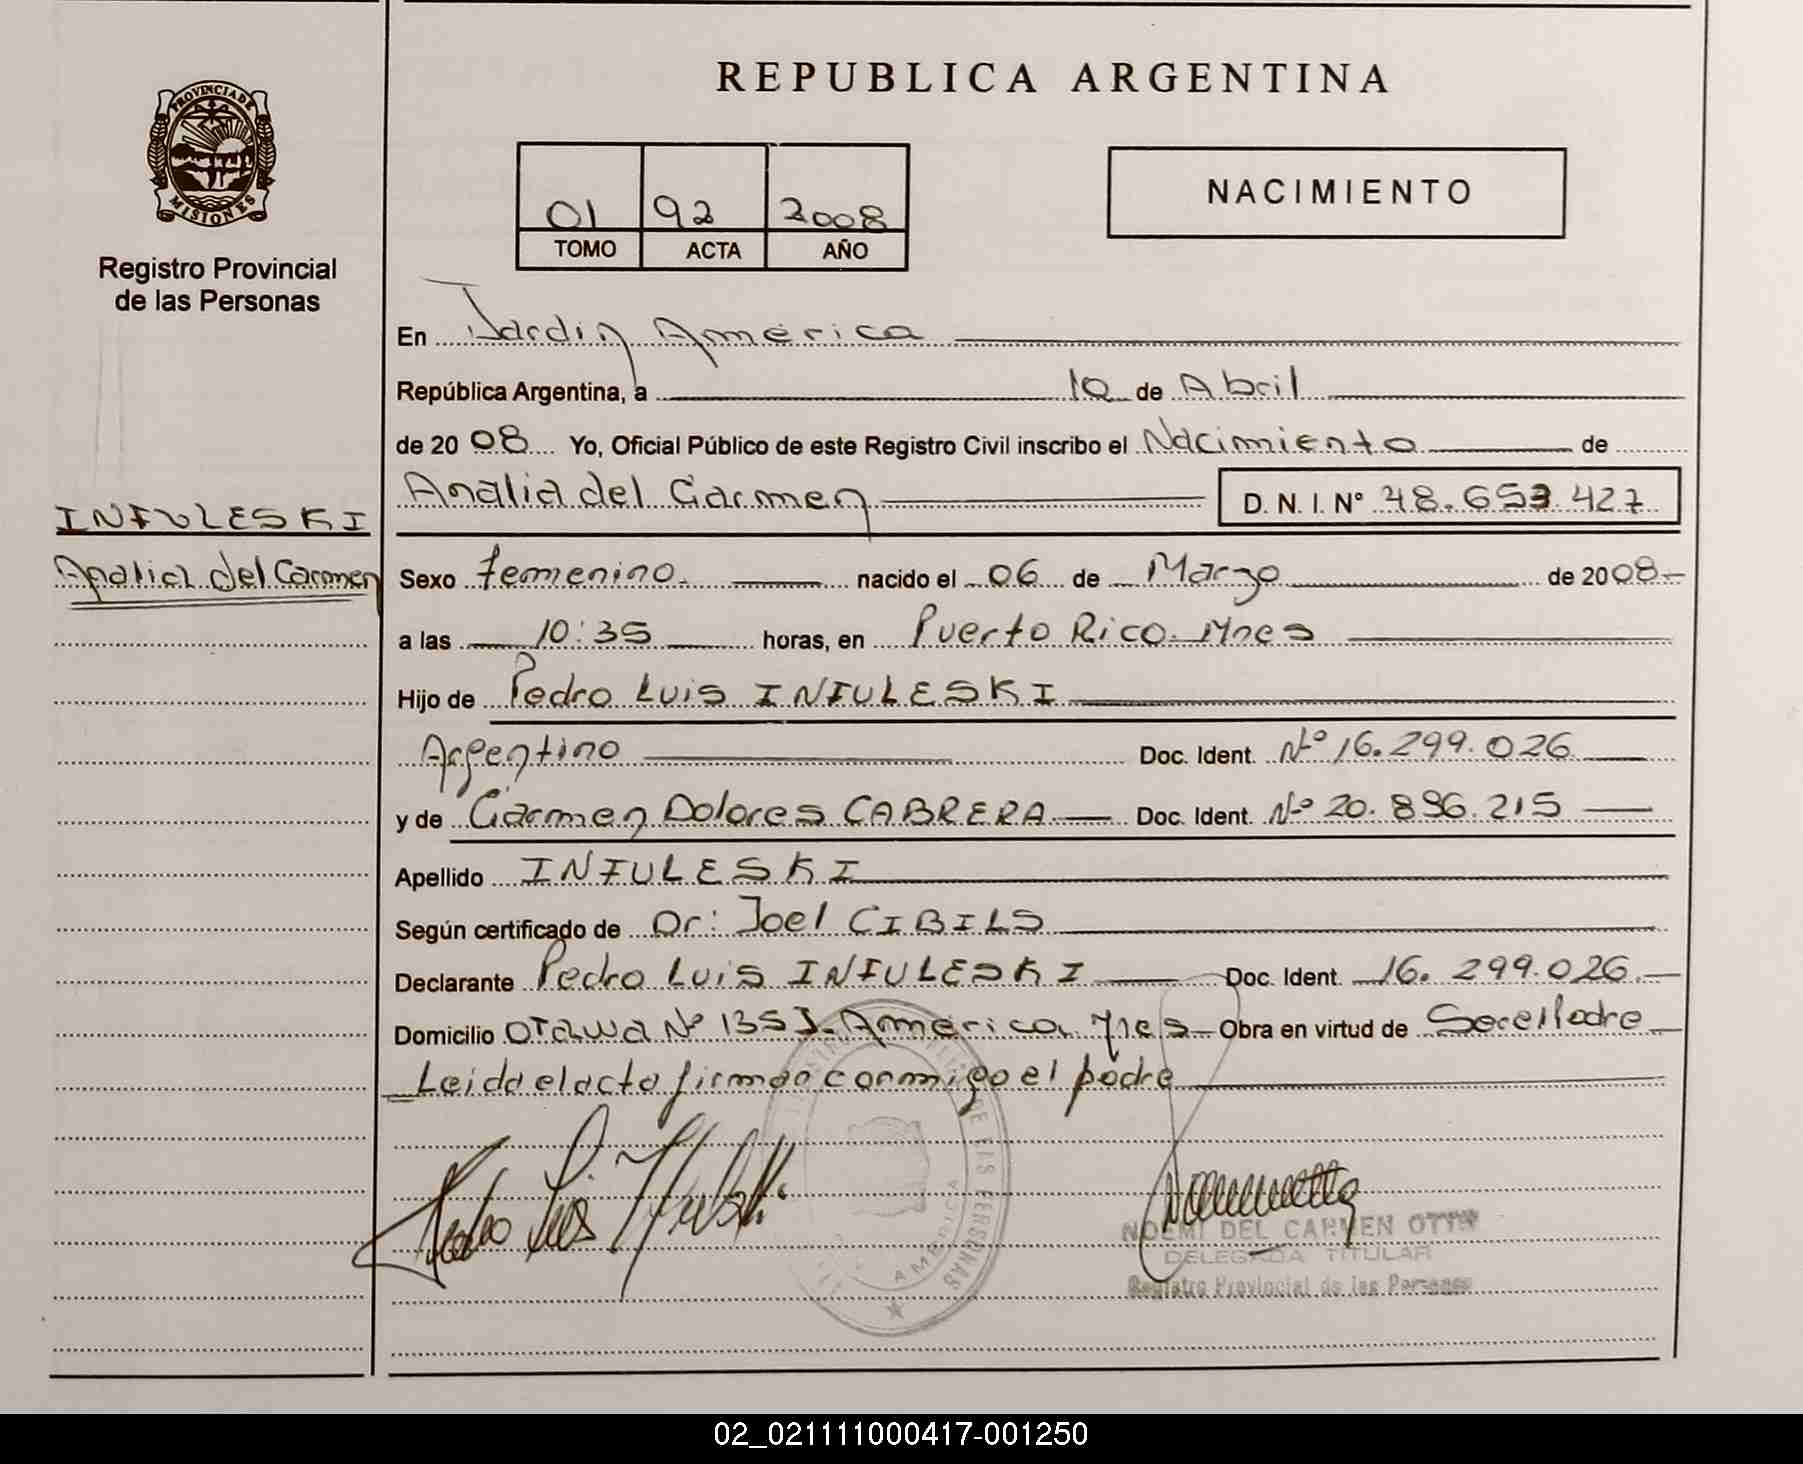 REPUBLICA ARGENTINA
PROVINCIA DE
MISIONES
Registro Provincial
de las Personas
01 92 2008
TOMO ACTA AÑO
NACIMIENTO
En Jardin América
República Argentina, a 10 de Abril
de 2008 Yo, Oficial Público de este Registro Civil inscribo el Nacimiento de
Analia del Carmen D. N. I. Nº 48.653.427
INFULESKI
Analia del Carmen
Sexo femenino nacido el 06 de Marzo de 2008
a las 10:35 horas, en Puerto Rico Mnes
Hijo de Pedro Luis INFULESKI
Argentino Doc. Ident. Nº 16.299.026
y de Carmen Dolores CABRERA Doc. Ident. Nº 20.896.215
Apellido INFULESKI
Según certificado de Dr: Joel CIBILS
Declarante Pedro Luis INFULESKI Doc. Ident. 16.299.026.
Domicilio Otawa Nº 135 J. América Mnes Obra en virtud de Ser el Padre
Leida el acta firman conmigo el padre
DE LAS PERSONAS
AMERICA
NOEMI DEL CARMEN OTTO
DELEGADA TITULAR
Registro Provincial de las Personas
02_021111000417-001250